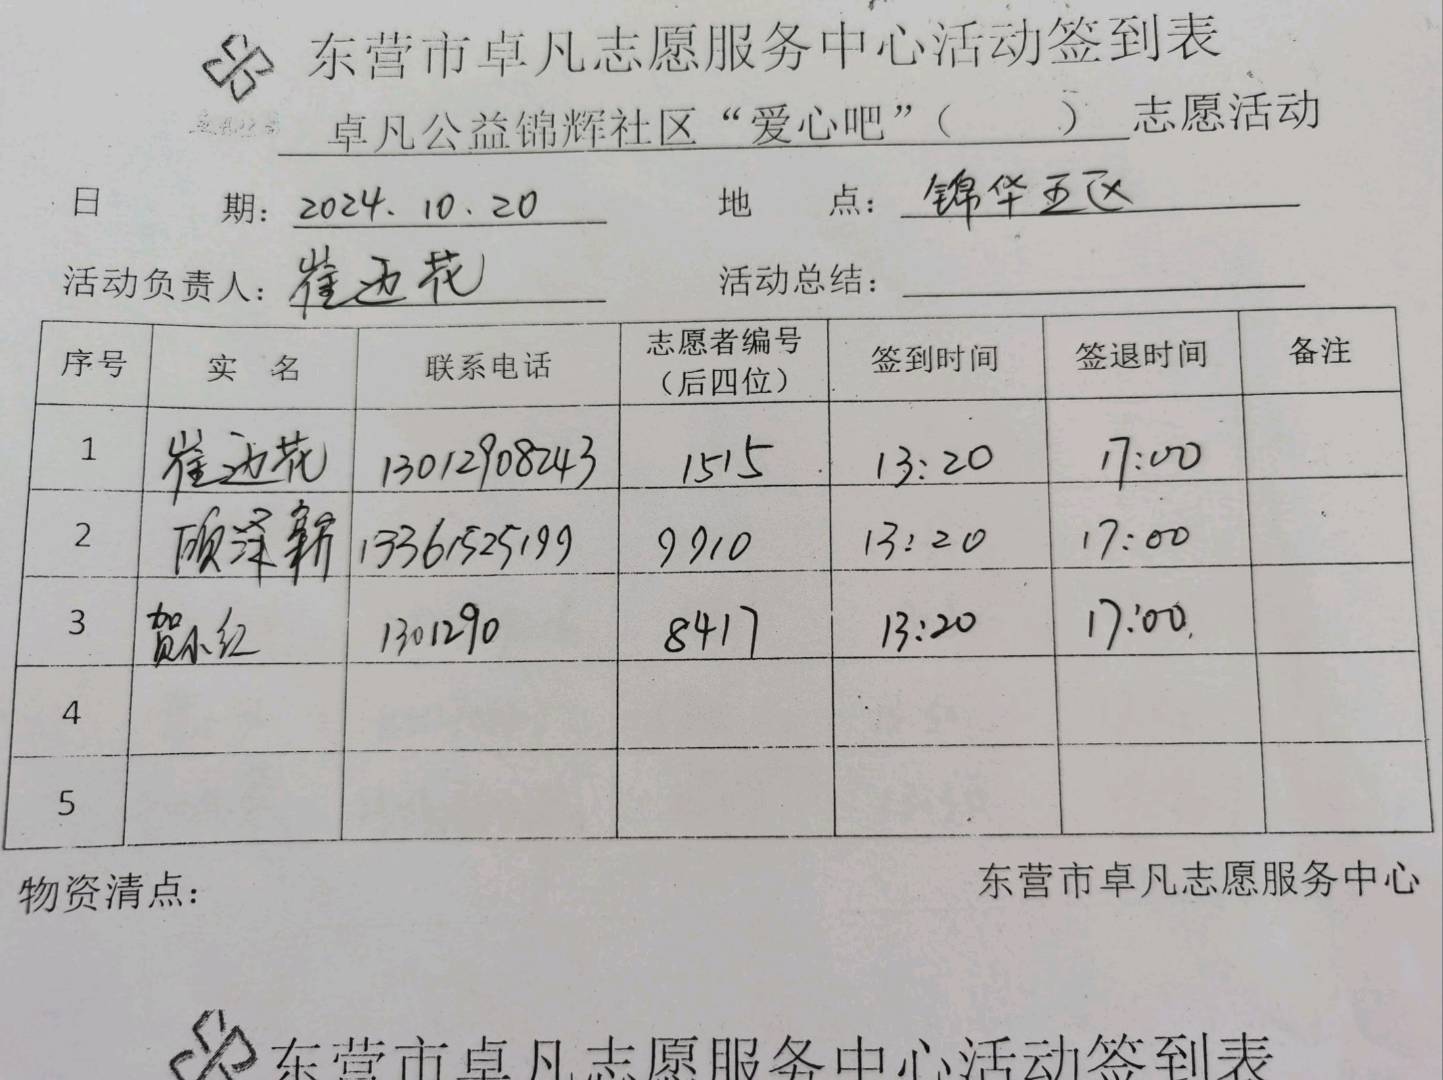 东营市卓凡志愿服务中心活动签到表
卓凡公益锦辉社区“爱心吧”（ ）志愿活动
日 期：2024.10.20 地 点：锦华五区
活动负责人：崔迎花 活动总结：
序号 实 名 联系电话 志愿者编号（后四位） 签到时间 签退时间 备注
1 崔迎花 13012908243 1515 13:20 17:00
2 顾泽新 13361525199 9910 13:20 17:00
3 贺小红 1301290 8417 13:20 17:00
4
5
物资清点： 东营市卓凡志愿服务中心
东营市卓凡志愿服务中心活动签到表